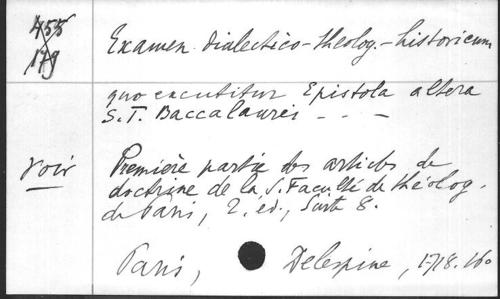 455
179
Examen dialectico-theolog.-historicum
quo excutitur Epistola altera
S.T. Baccalaurei - - -
voir
Première partie des articles de
doctrine de la S. Faculté de théolog.
de Paris, 2. éd., Suite 8.
Paris, Delespine, 1718. 16o